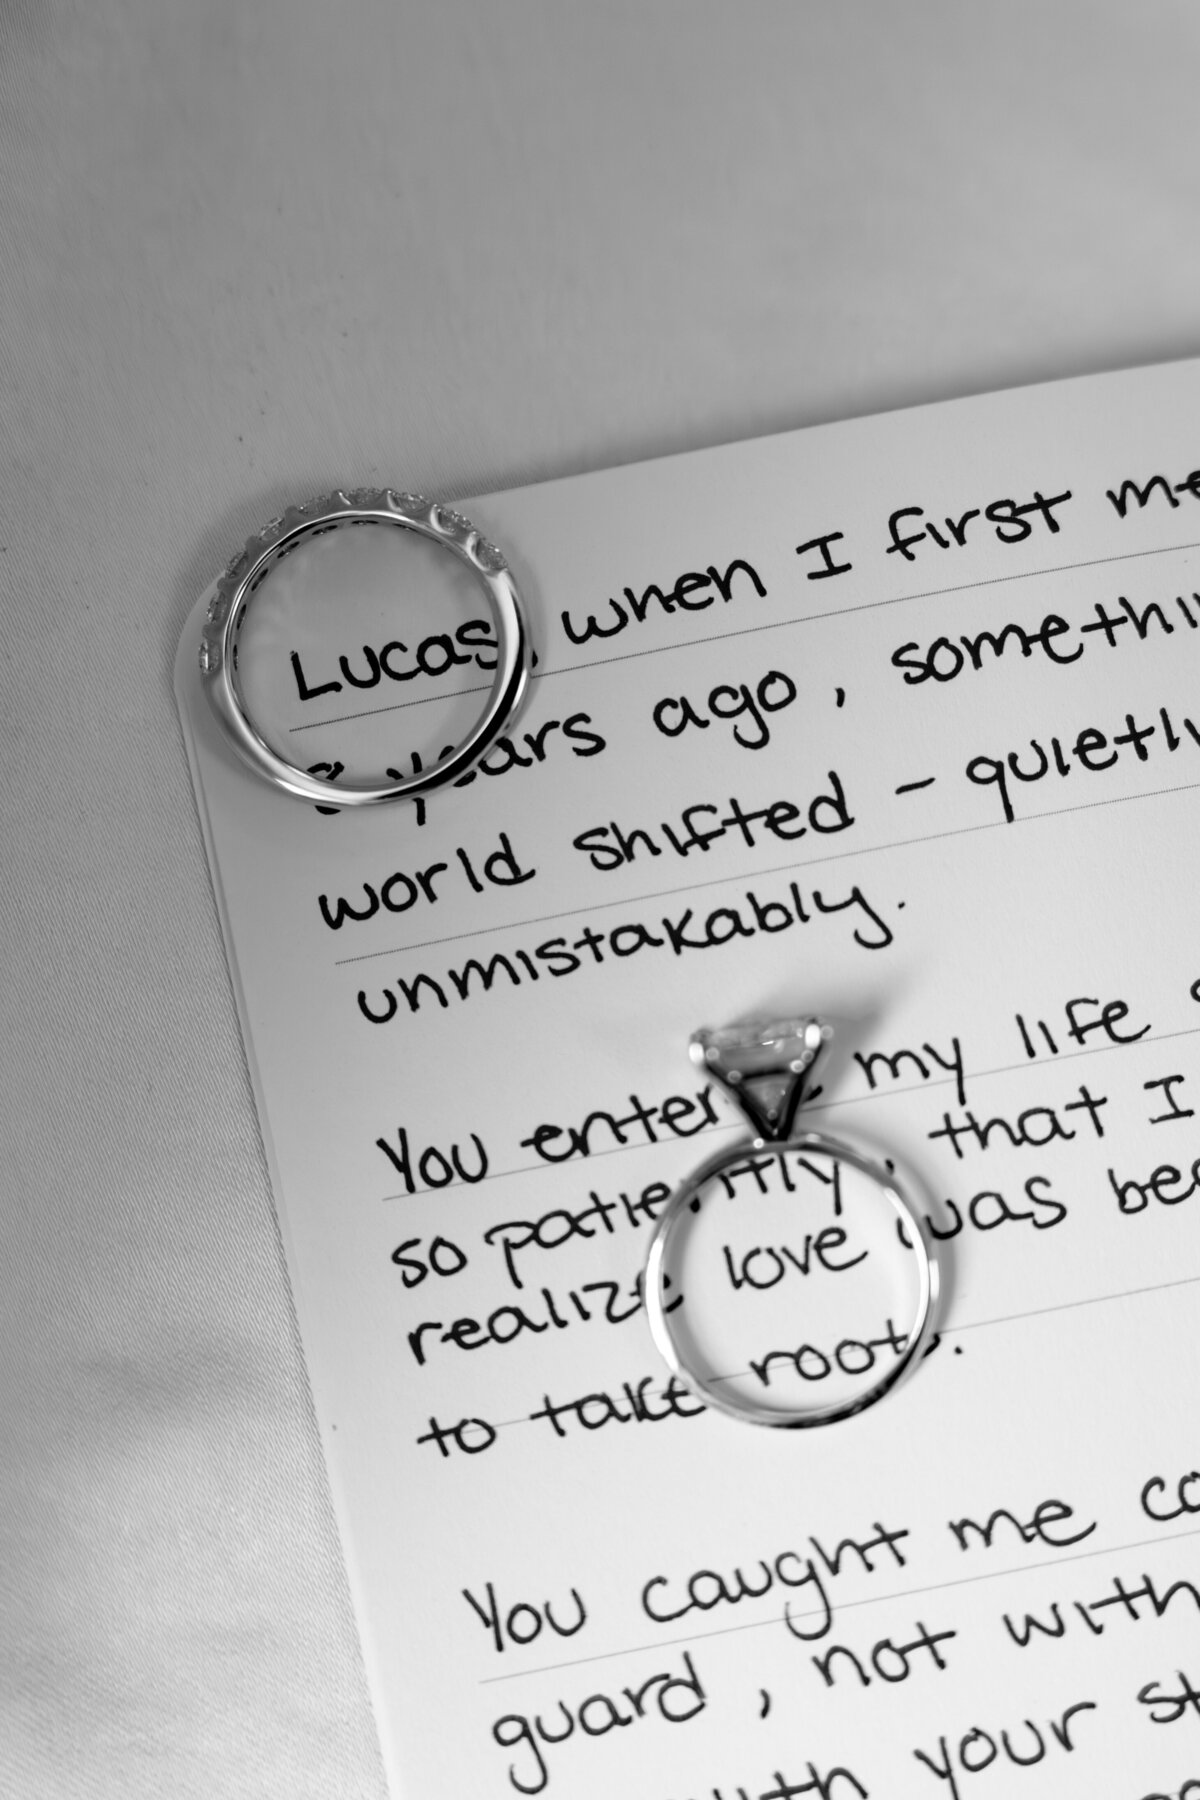 Lucas, when I first me
years ago, somethin
world shifted - quietly
unmistakably.
You enter my life s
so patiently, that I
realize love was beg
to take root.
You caught me co
guard, not with
with your st